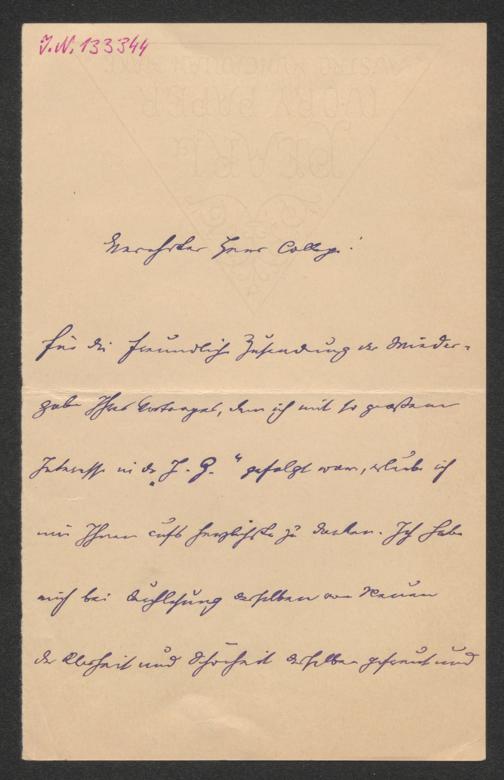 J.N. 133344
IVORY PAPER
PEARL
Verehrter Herr College!
Für die freundliche Zusendung der Wieder-
gabe Ihres Vortrages, dem ich mit so großem
Interesse in der „J. G." gefolgt war, erlaube ich
mir Ihnen aufs herzlichste zu danken. Ich habe
mich bei Durchlesung desselben von Neuem
der Klarheit und Schönheit desselben gefreut und